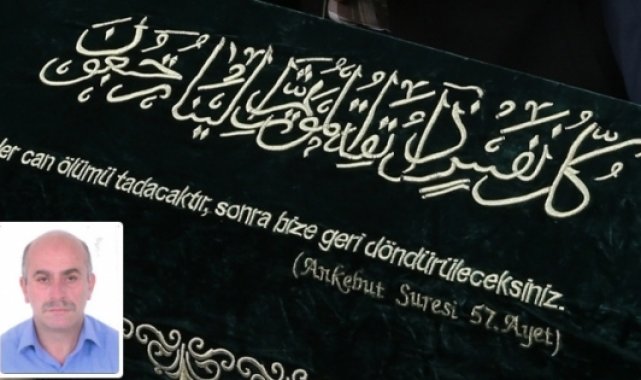 كل نفس ذائقة الموت ثم إلينا ترجعون
er can ölümü tadacaktır, sonra bize geri döndürüleceksiniz.
(Ankebut Suresi 57. Ayet)